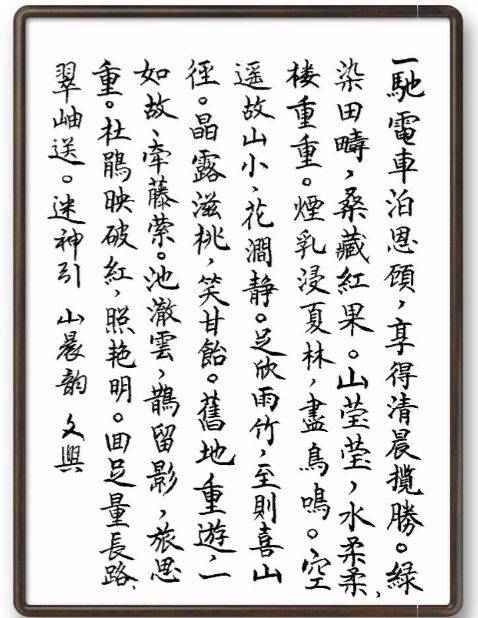 一馳電車泊恩頋，享得清晨攬勝。緑
染田疇，桑藏紅果。山莹莹，水柔柔，
楼重重。煙乳浸夏林，盡鳥鳴。空
遥故山小、花澗静。足欣雨竹，至則喜山
徑。晶露滋桃，笑甘飴。舊地重遊，一
如故、牽藤萦。池澈雲，鵲留影，旅思
重。杜鵑映破紅，照艳明。回足量長路，
翠岫送。迷神引 山晨韵 文興